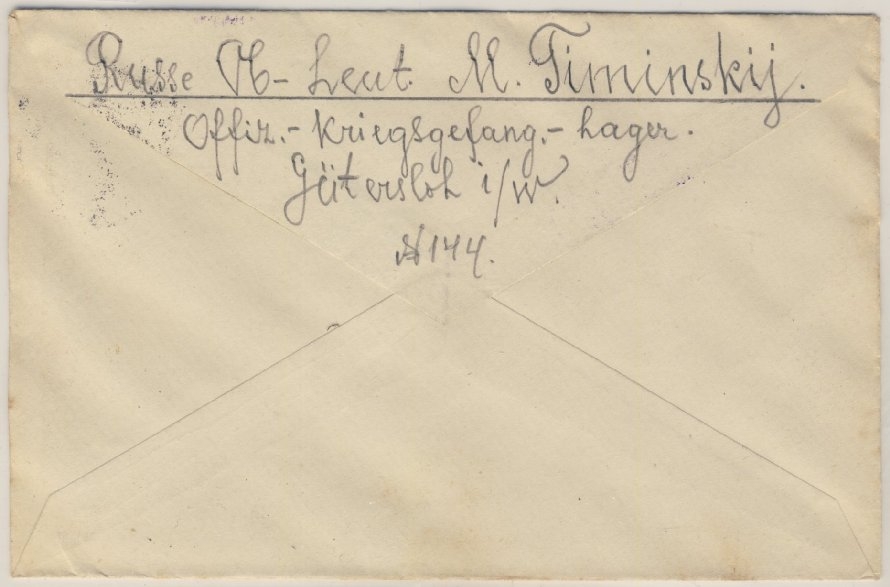 Russe U-Leut. M. Timinskij.
Offiz.-Kriegsgefang.-Lager.
Gütersloh i/W.
№144.